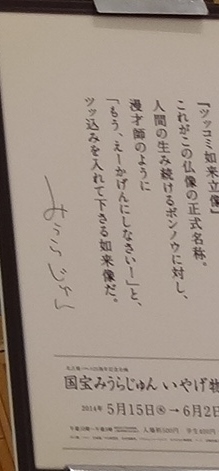 『ツッコミ如来立像』
これがこの仏像の正式名称。
人間の生み続けるボンノウに対し、
漫才師のように
「もう、えーかげんにしなさい！」と、
ツッ込みを入れて下さる如来像だ。
みうらじゅん
国宝みうらじゅん いやげ物
2014年 5月15日㊍→6月2日
入場料500円 学生400円